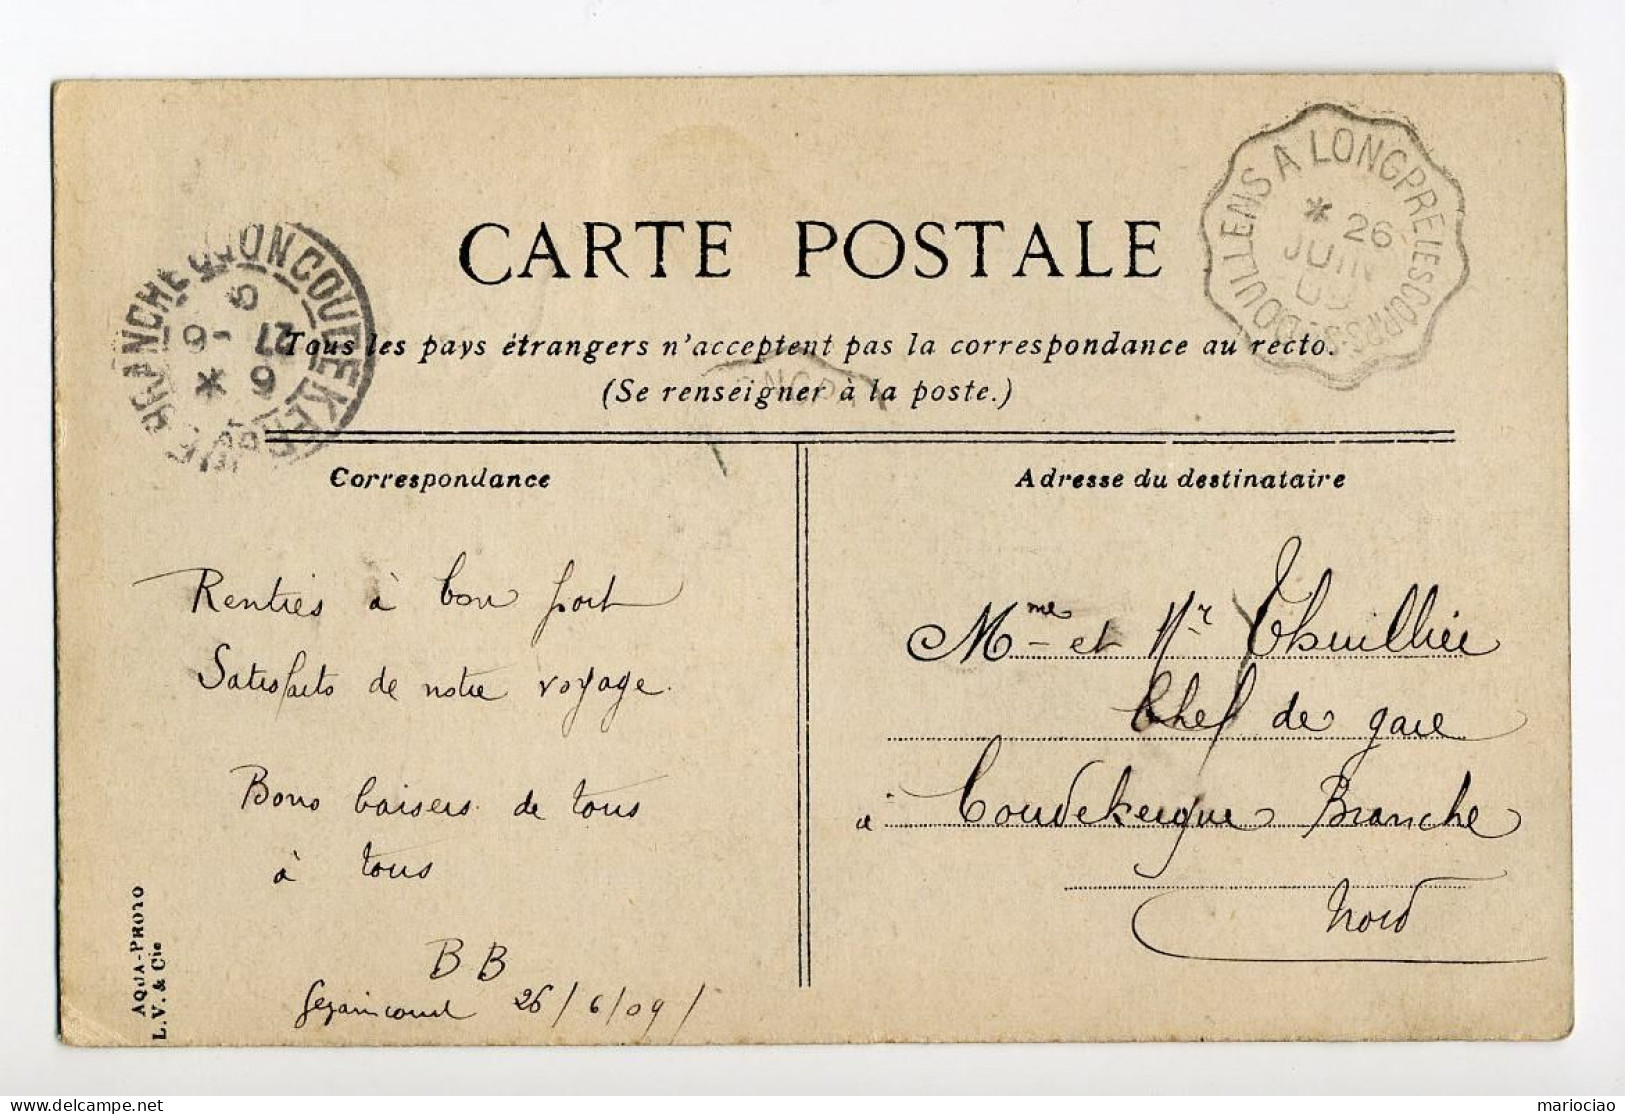 DOULLENS A LONGPRÉ LES CORPS S
* 26
JUIN
09
COUDEKERQUE BRANCHE
6
27 - 6
09
CARTE POSTALE
Tous les pays étrangers n'acceptent pas la correspondance au recto.
(Se renseigner à la poste.)
Correspondance
Rentrés à bon port
Satisfaits de notre voyage.
Bons baisers de tous
à tous
B B
Gezaincourt 26/6/09/
Adresse du destinataire
Mme et Mr Thuillier
Chef de gare
à Coudekerque Branche
Nord
AQUA-PHOTO
L.V. & Cie
mariociao